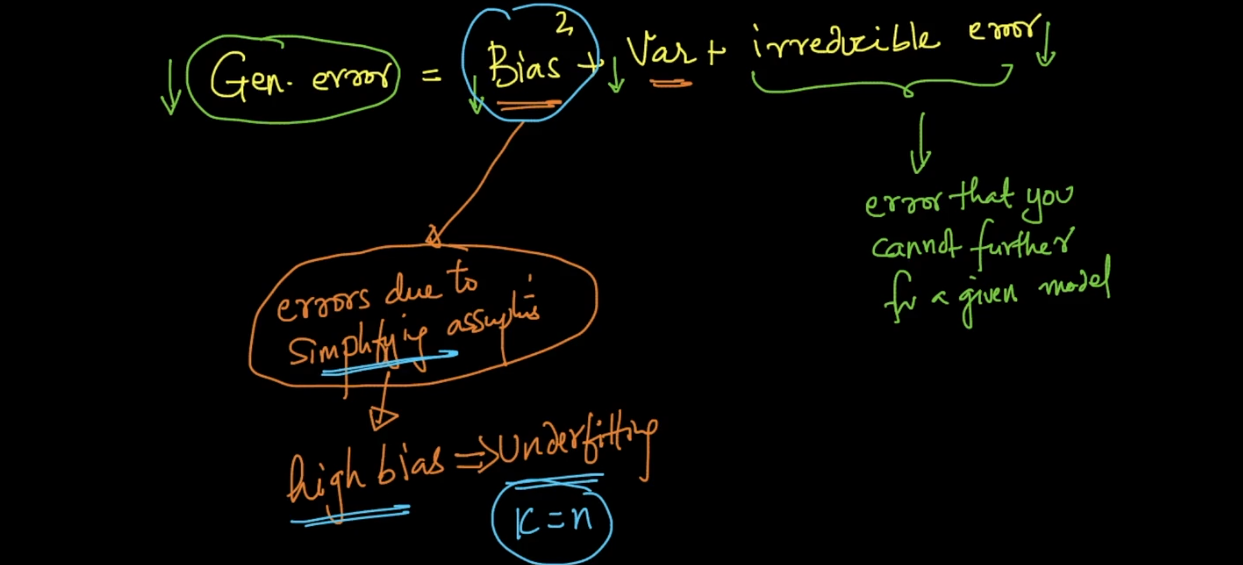 Gen. error = Bias² + Var + irreducible error
error that you
cannot further
for a given model
errors due to
simplifying assumptions
high bias ⇒ Underfitting
K=n